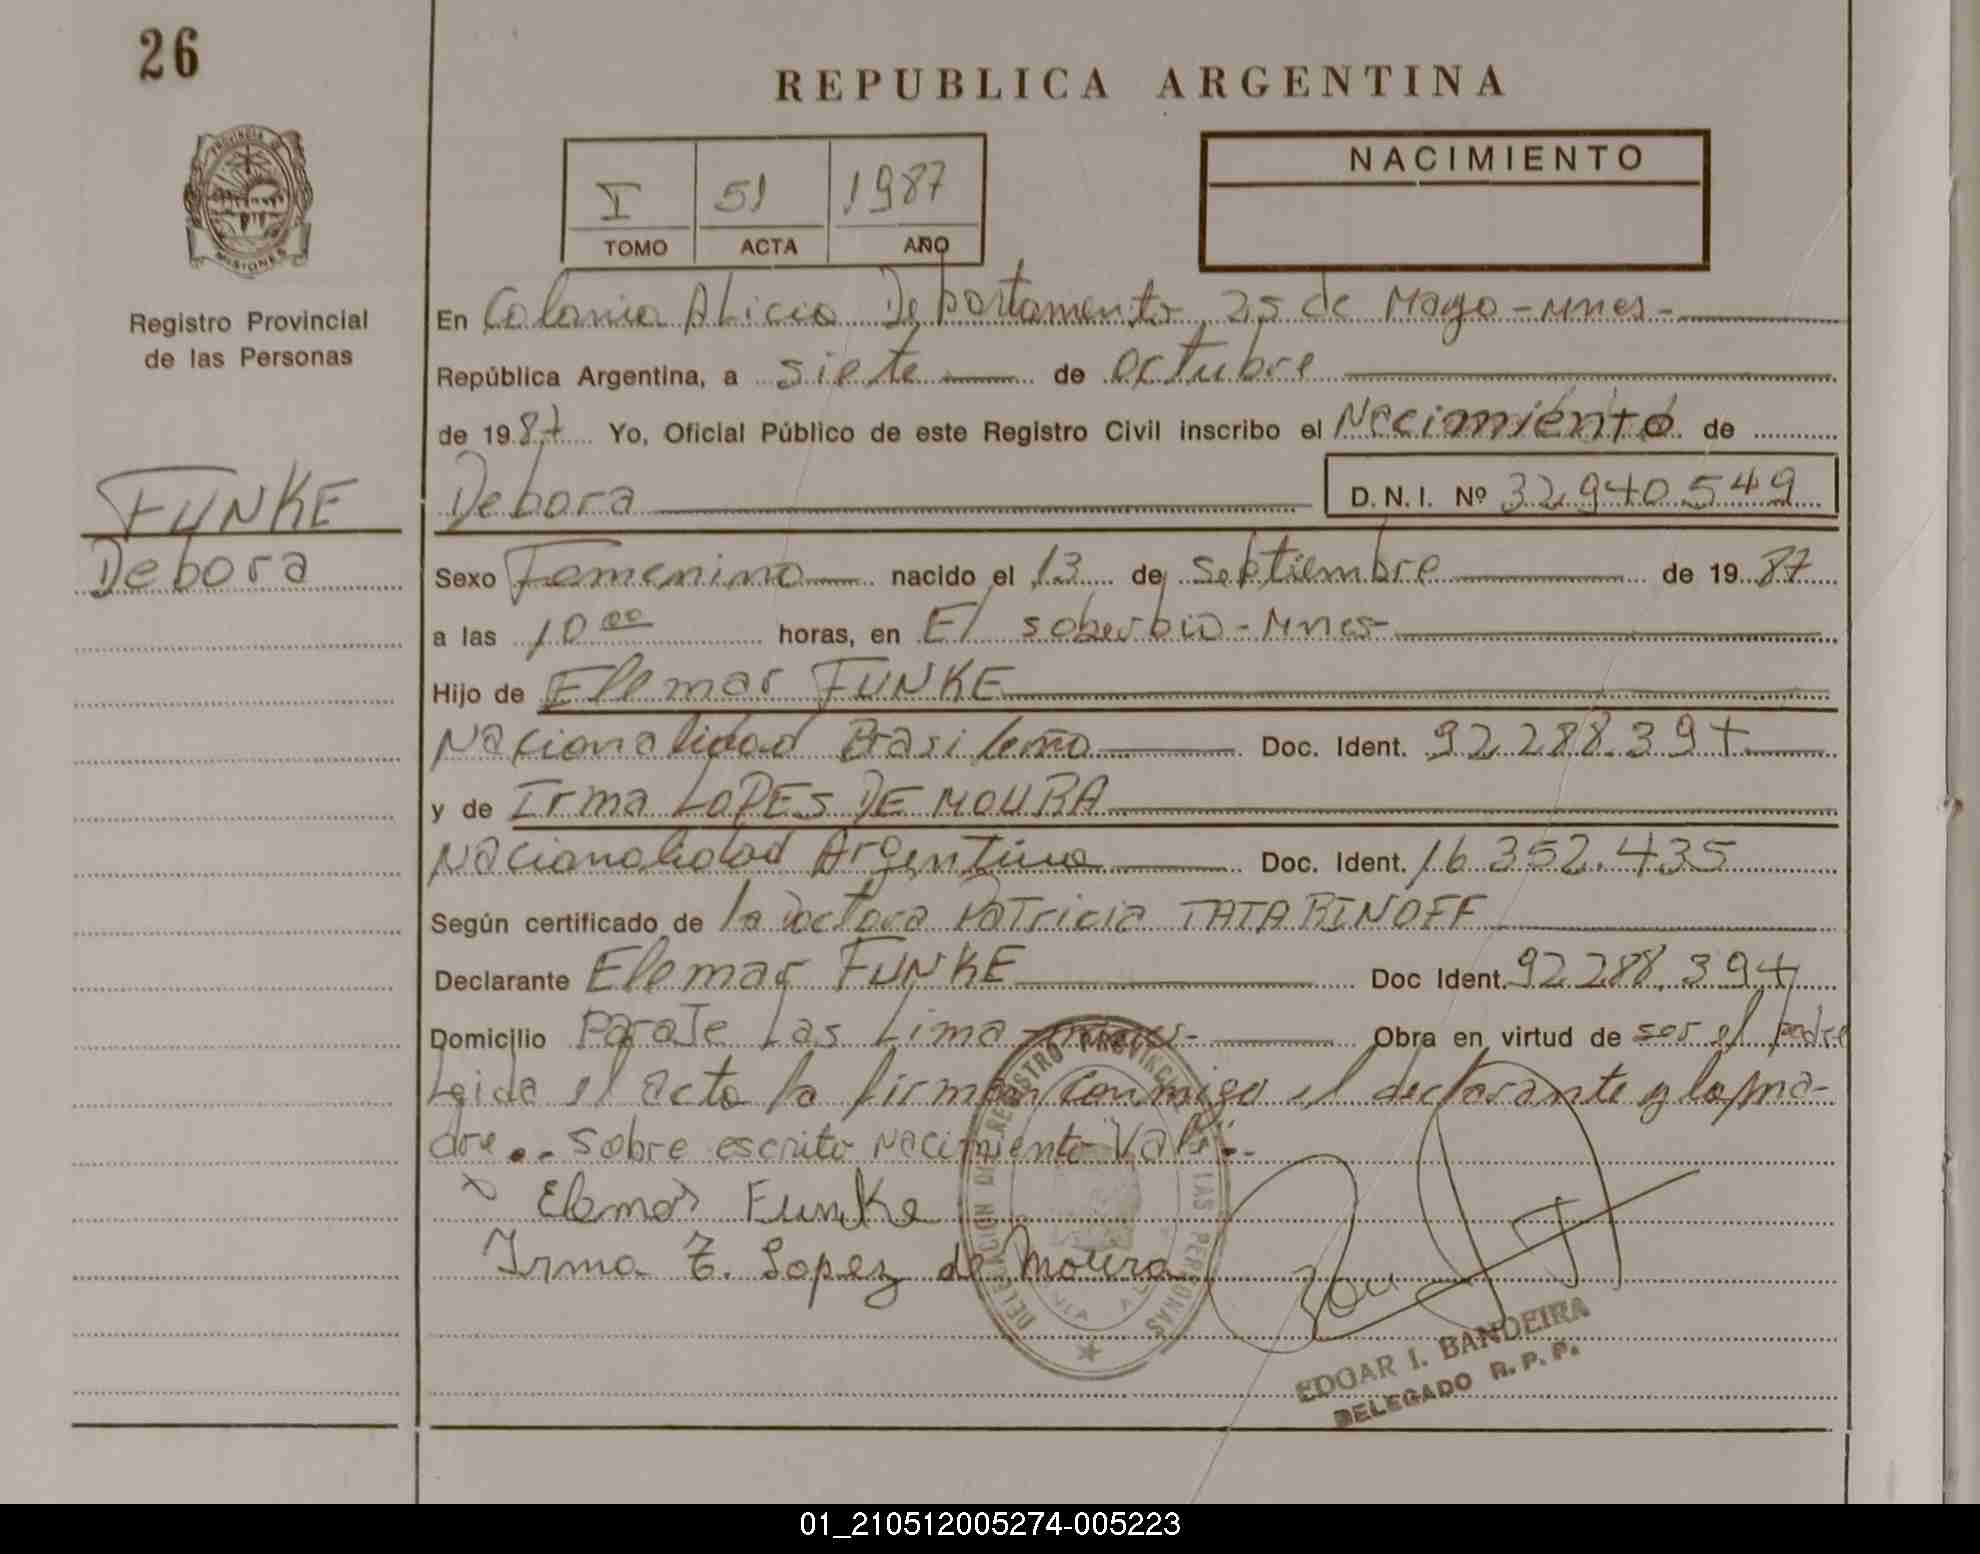 26
REPUBLICA ARGENTINA
PROVINCIA D
MISIONES
Registro Provincial
de las Personas
I 51 1987
TOMO ACTA AÑO
NACIMIENTO
En Colonia Alicia Departamento 25 de Mayo - Mnes -
República Argentina, a siete de octubre
de 1987 Yo, Oficial Público de este Registro Civil inscribo el Nacimiento de
FUNKE
Debora
Debora D.N.I. Nº 32.940.549
Sexo Femenino nacido el 13 de septiembre de 1987
a las 10 00 horas, en El soberbio - Mnes -
Hijo de Elemar FUNKE
Nacionalidad Brasileño Doc. Ident. 92.288.397
y de Irma LOPES DE MOURA
Nacionalidad Argentina Doc. Ident. 16.352.435
Según certificado de la Doctora Patricia TATARINOFF
Declarante Elemar FUNKE Doc Ident. 92.288.397
Domicilio Paraje Las Lima - Mnes - Obra en virtud de ser el padre
Leida el acta la firman conmigo el declarante y la ma-
dre.. Sobre escrito Nacimiento Vale.-
Elemar Funke
Irma T. Lopez de Moura
DELEGACION DEL REGISTRO PROVINCIAL DE LAS PERSONAS
EDGAR I. BANDEIRA
DELEGADO R. P. P.
01_210512005274-005223